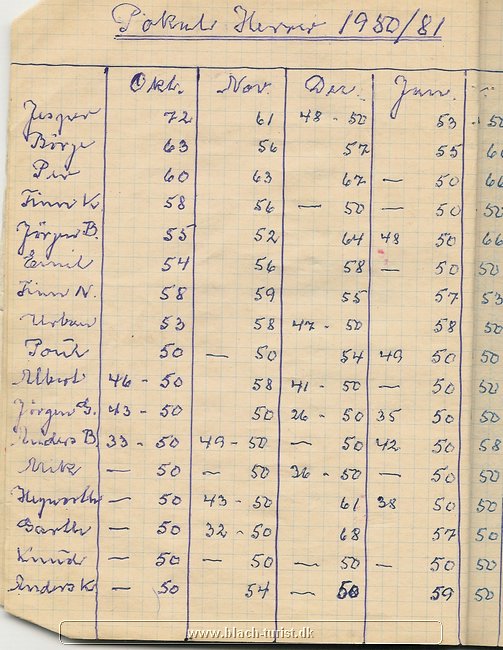 Pokal Herrer 1980/81
Okt. Nov. Dec. Jan.
Jesper 72 61 48 - 50 53 50
Börge 63 56 57 55
Per 60 63 67 — 50 66
Finn K. 58 56 — 50 — 50 50
Jörgen B. 55 52 64 48 50 66
Emil 54 56 58 — 50 50
Finn N. 58 59 55 57 53
Urban 53 58 47 - 50 58 50
Poul 50 — 50 54 49 50 50
Albert 46 - 50 58 41 - 50 — 50 50
Jörgen G. 43 - 50 50 26 - 50 35 50 50
Anders B 33 - 50 49 - 50 — 50 42 50 58
— 50 — 50 36 - 50 — 50 50
— 50 43 - 50 61 38 50 50
— 50 32 - 50 68 57 50
Knud — 50 — 50 — 50 — 50 50
Anders K — 50 54 — 50 59 50
www.blach-turist.dk